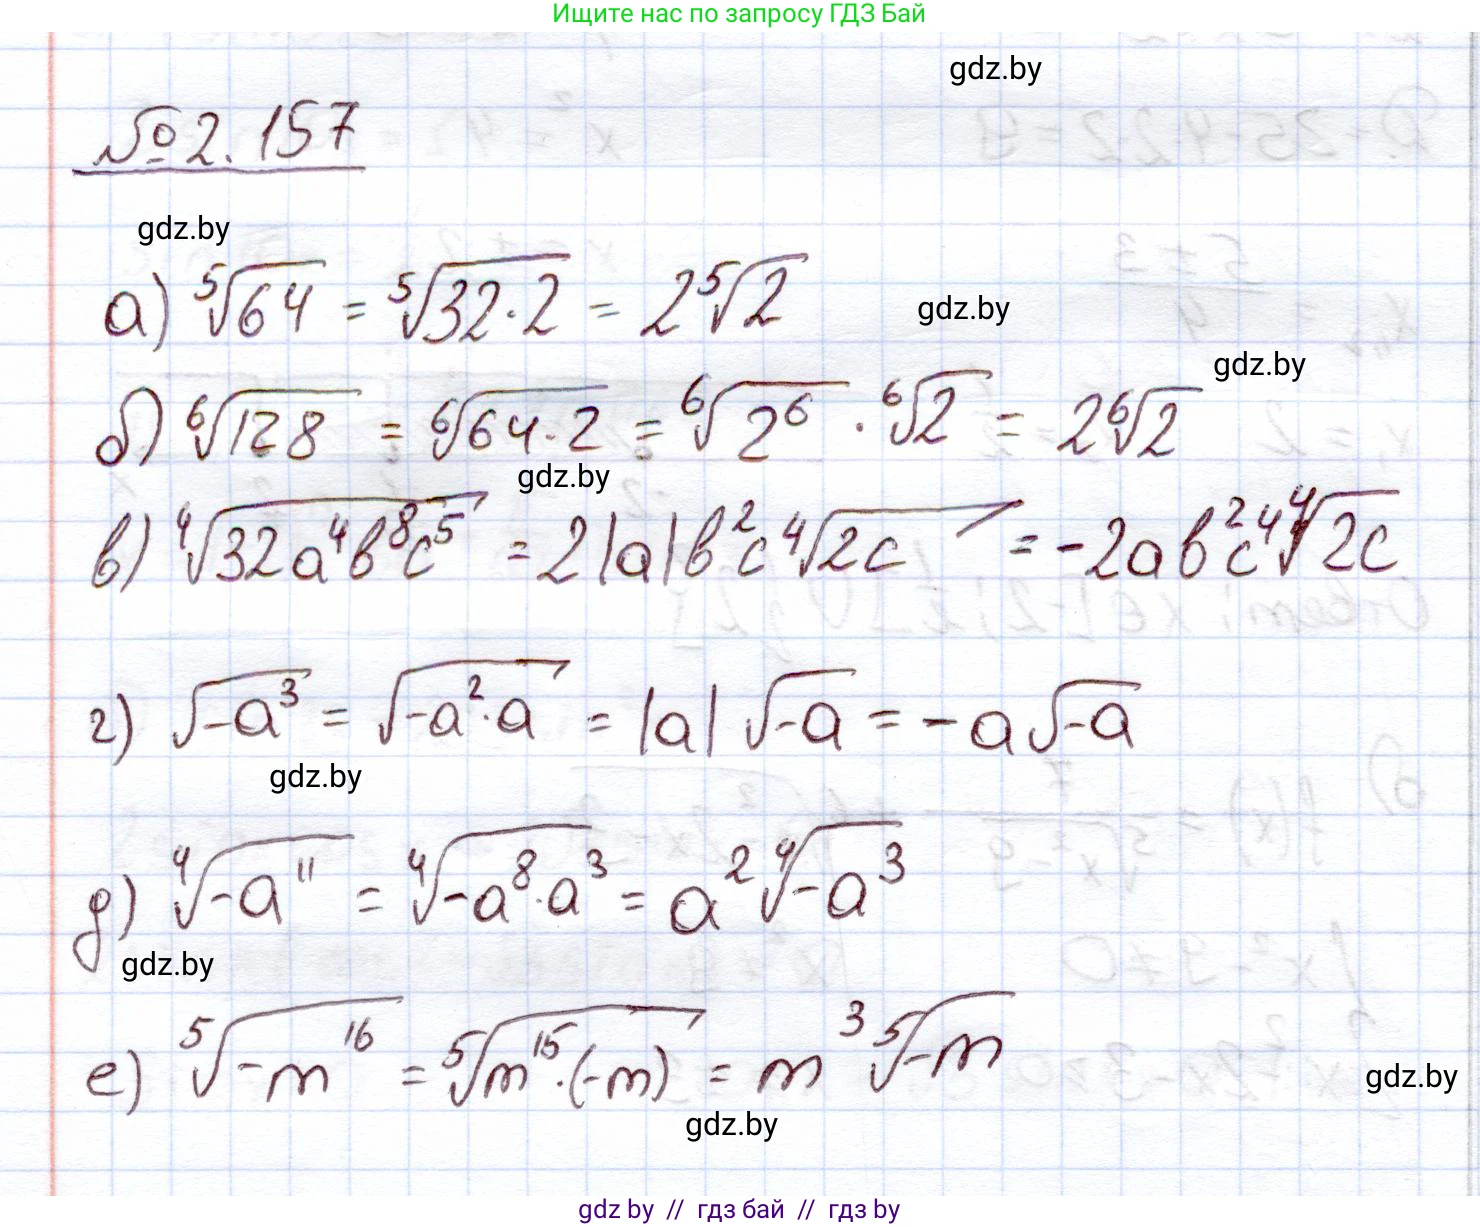 Ищите нас по запросу ГДЗ Бай
gdz.by
№2.157
gdz.by
а) ⁵√64 = ⁵√32·2 = 2⁵√2
gdz.by
gdz.by
б) ⁶√128 = ⁶√64·2 = ⁶√2⁶ · ⁶√2 = 2⁶√2
gdz.by
в) ⁴√32a⁴b⁸c⁵ = 2|a|b²c ⁴√2c = -2ab²c⁴ ⁴√2c
г) √-a³ = √-a²·a = |a| √-a = -a√-a
gdz.by
д) ⁴√-a¹¹ = ⁴√-a⁸·a³ = a² ⁴√-a³
gdz.by
е) ⁵√-m¹⁶ = ⁵√m¹⁵·(-m) = m³ ⁵√-m
gdz.by
gdz.by
gdz.by // гдз бай // гдз by